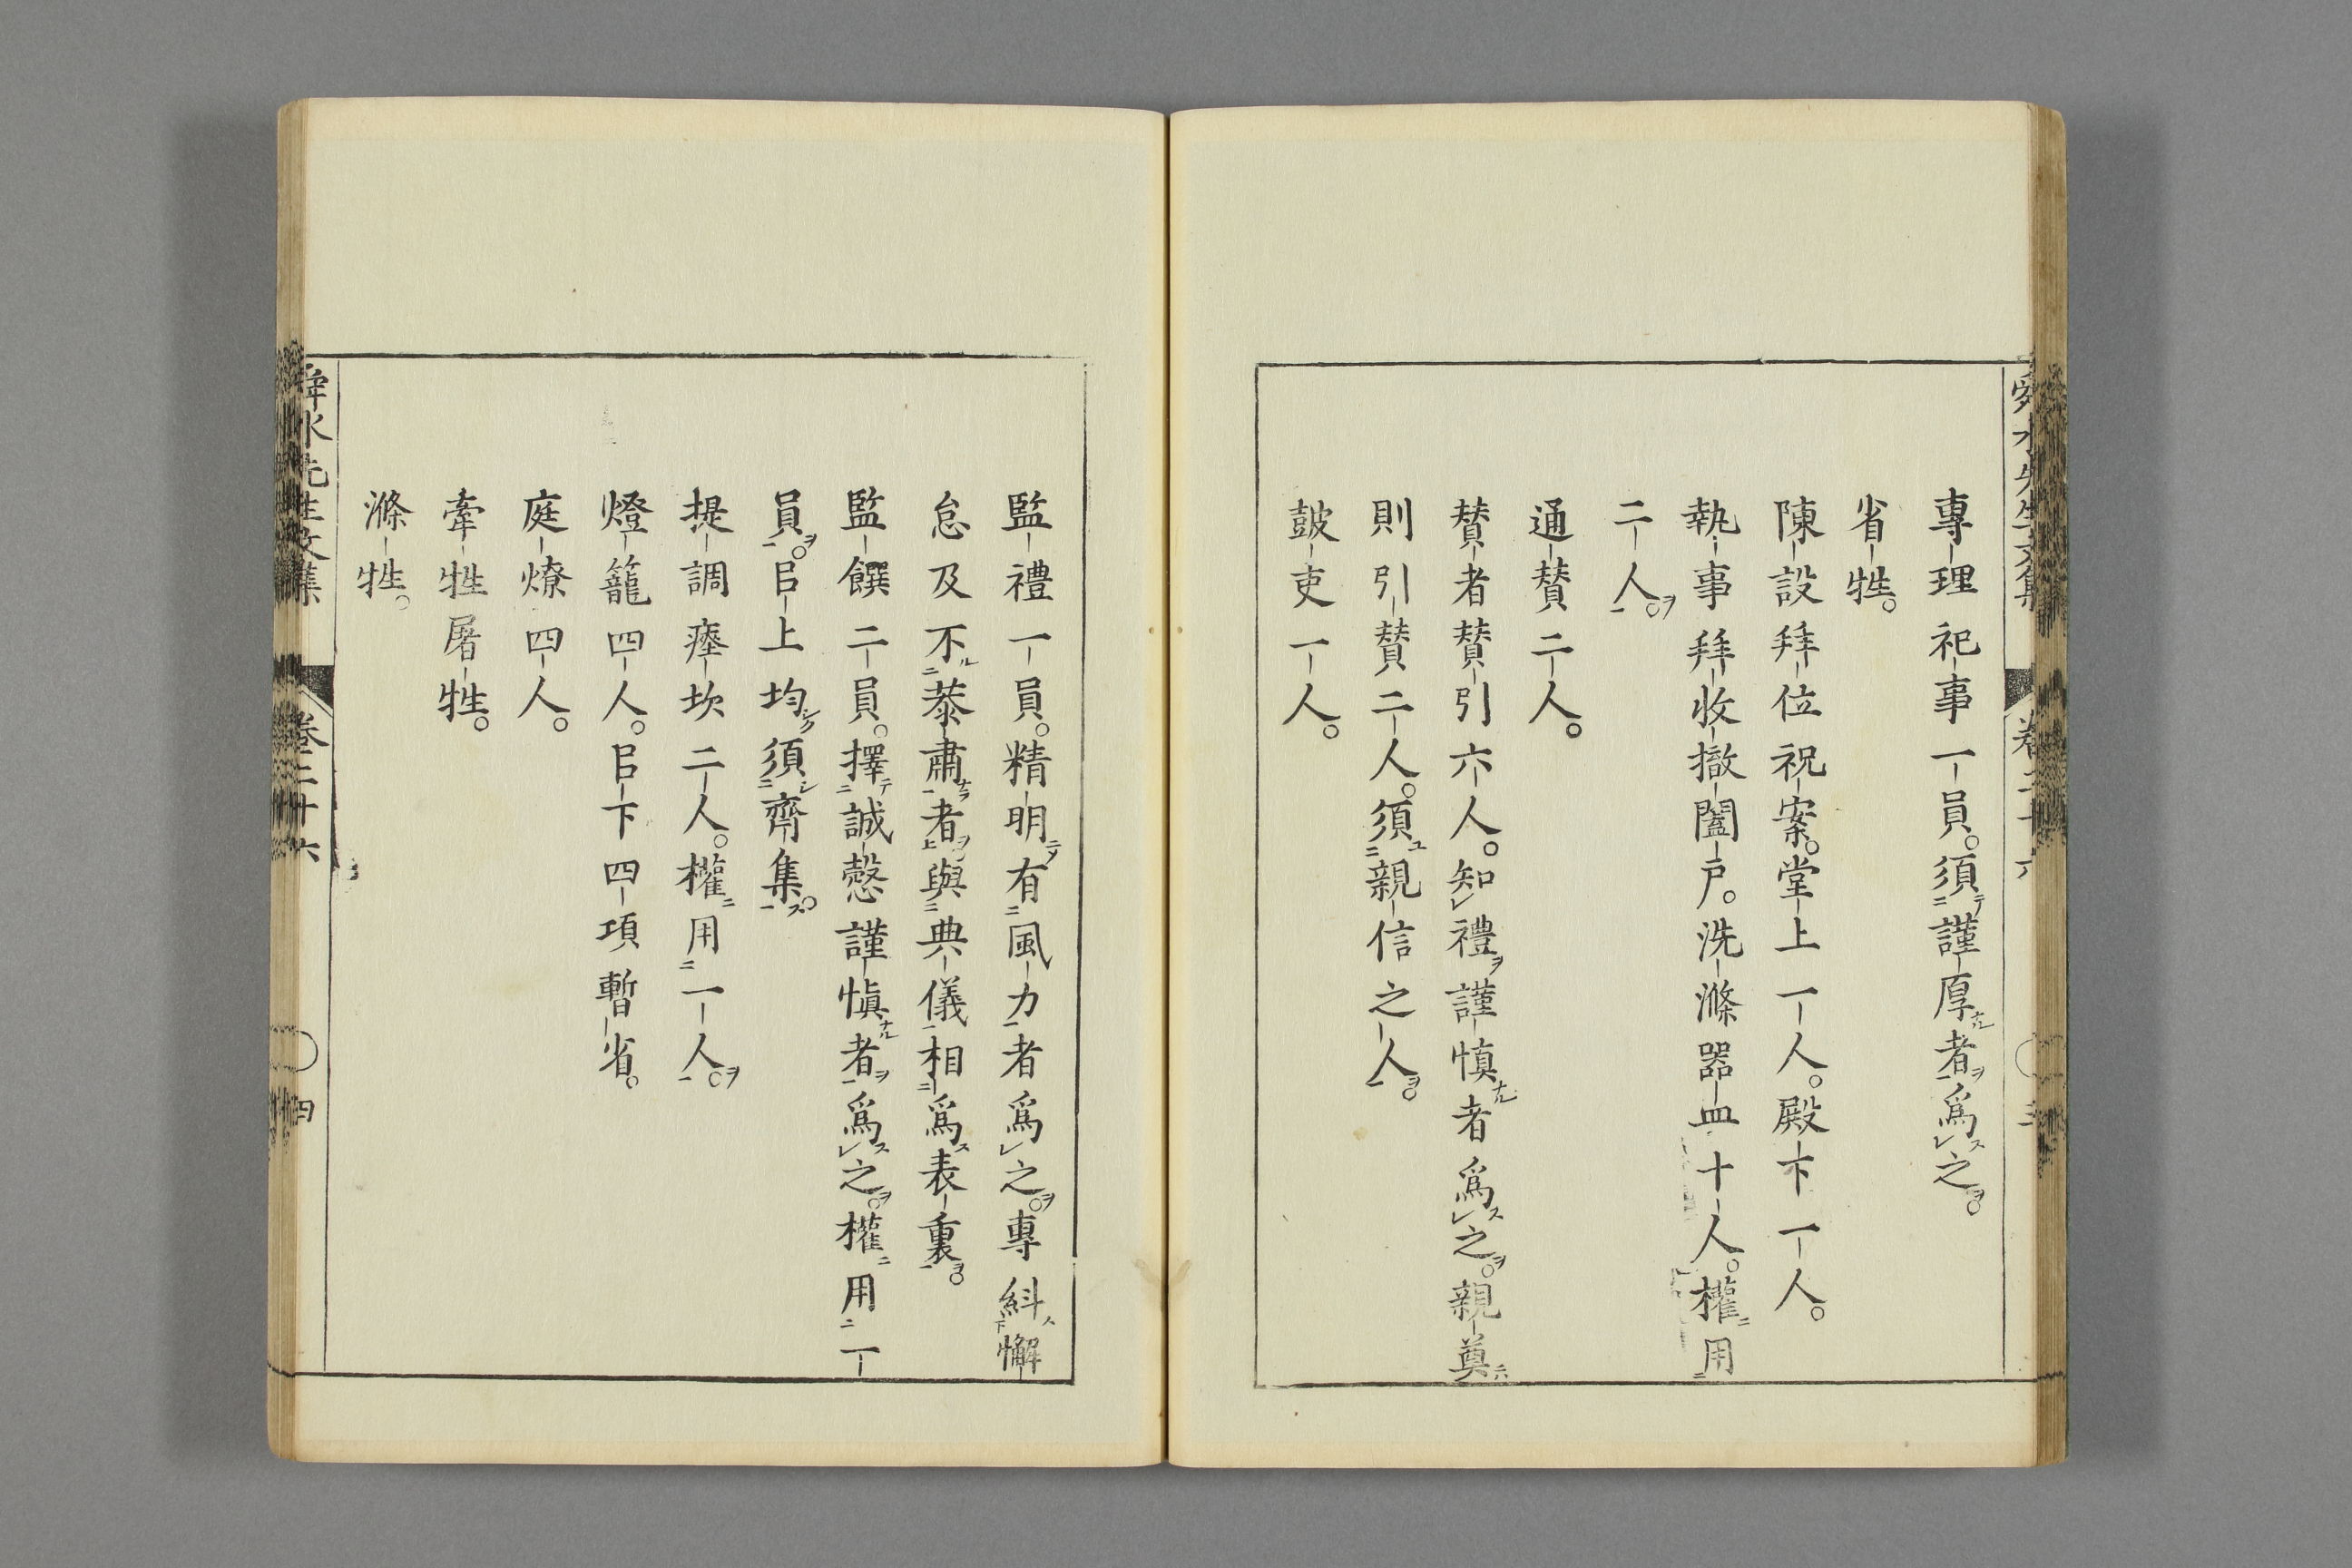 舜水先生文集　卷二十六　三
專理祀事一員。須謹厚者爲之。
省牲。
陳設拜位祝案。堂上一人。殿下一人。
執事拜收撤闔戶。洗滌器皿十人。權用
二人。
通贊二人。
贊者贊引六人。知禮謹慎者爲之。親奠
則引贊二人。須親信之人。
鼓吏一人。
監禮一員。精明有風力者爲之。專糾懈
怠及不恭肅者。與典儀相爲表裏。
監饌二員。擇誠慤謹慎者爲之。權用一
員。㠯上均須齊集。
提調瘞坎二人。權用一人。
燈籠四人。㠯下四項暫省。
庭燎四人。
牽牲屠牲。
滌牲。
舜水先生文集　卷二十六　四